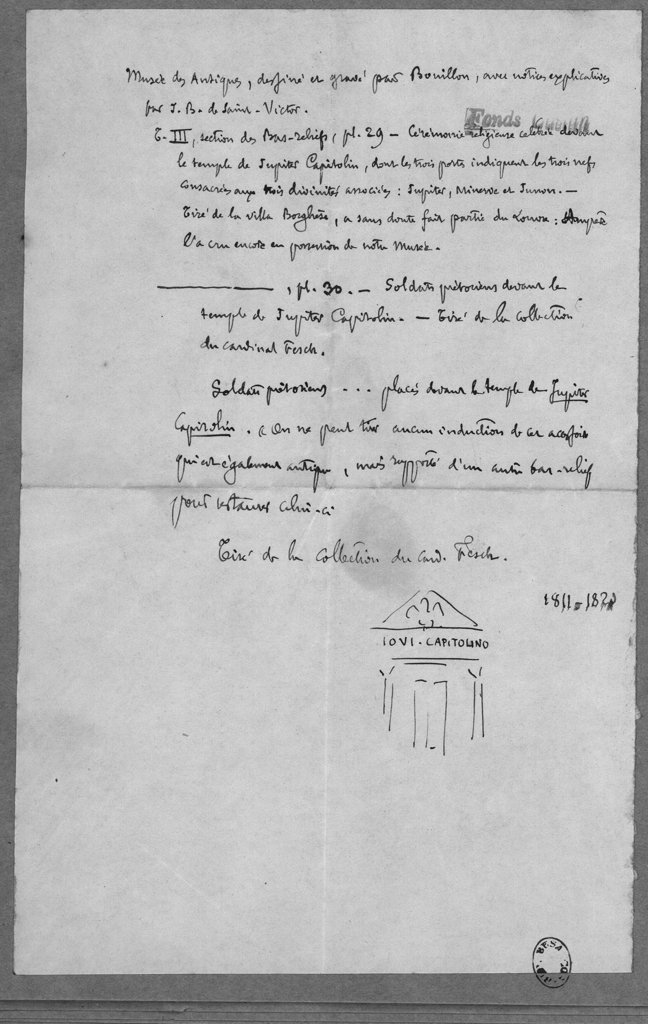 Musée des Antiques, dessiné et gravé par Bouillon, avec notices explicatives
par J. B. de Saint-Victor.
Fonds
T. III, section des Bas-reliefs, pl. 29 – Cérémonie religieuse célébrée devant
le temple de Jupiter Capitolin, dont les trois portes indiquent les trois nefs
consacrées aux trois divinités associées : Jupiter, Minerve et Junon. –
Tiré de la villa Borghèse, a sans doute fait partie du Louvre :
l'a cru encore en possession de notre Musée.
———, pl. 30. – Soldats prétoriens devant le
temple de Jupiter Capitolin. – Tiré de la collection
du cardinal Fesch.
Soldats prétoriens ... placés devant le temple de Jupiter
Capitolin. « On ne peut tirer aucune induction de cet accessoire
qui est également antique, mais rapporté d'un autre bas-relief
pour restaurer celui-ci
Tiré de la collection du card. Fesch.
1811-182
IOVI · CAPITOLINO
BESA